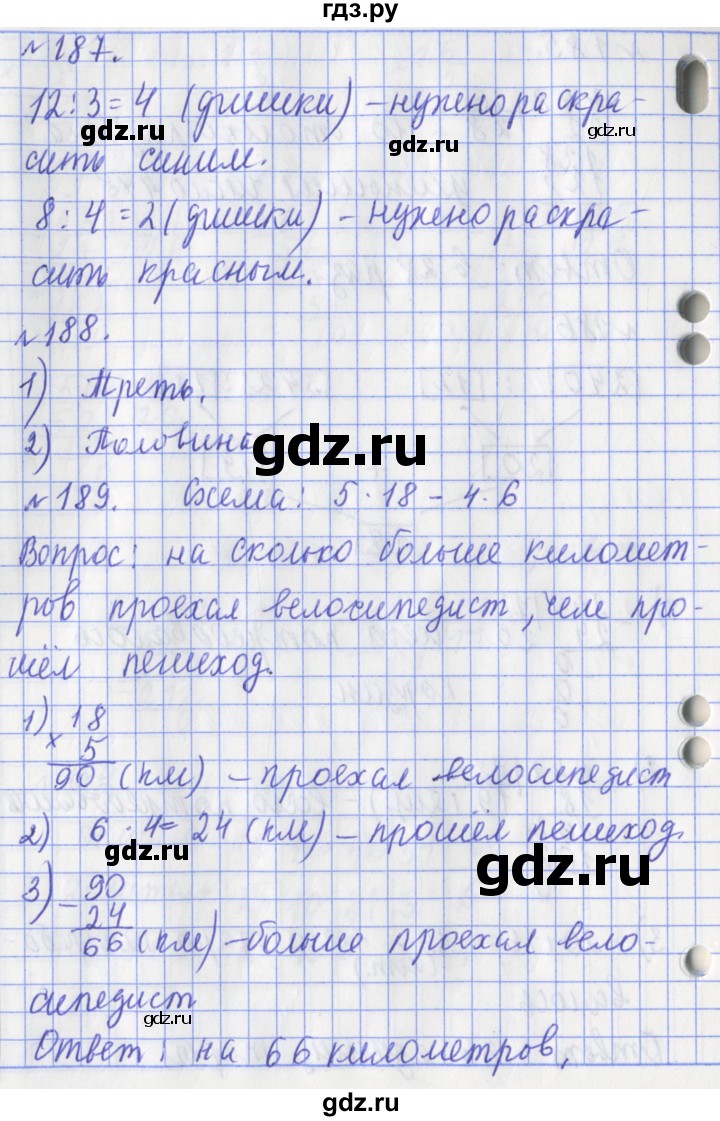 гдз.ру
№187.
12:3=4 (фишки) – нужно раскра-
gdz.ru
gdz.ru
сить синим.
8:4=2 (фишки) – нужно раскра-
сить красным.
№188.
1) Треть.
2) Половина
gdz.ru
№189. Схема: 5·18 – 4·6
Вопрос: на сколько больше километ-
ров проехал велосипедист, чем про-
шёл пешеход.
1) 18
× 5
90 (км) – проехал велосипедист
2) 6·4= 24 (км) – прошёл пешеход.
gdz.ru
gdz.ru
3) – 90
24
66 (км) – больше проехал вело-
сипедист
gdz.ru
gdz.ru
Ответ: на 66 километров.
gdz.ru